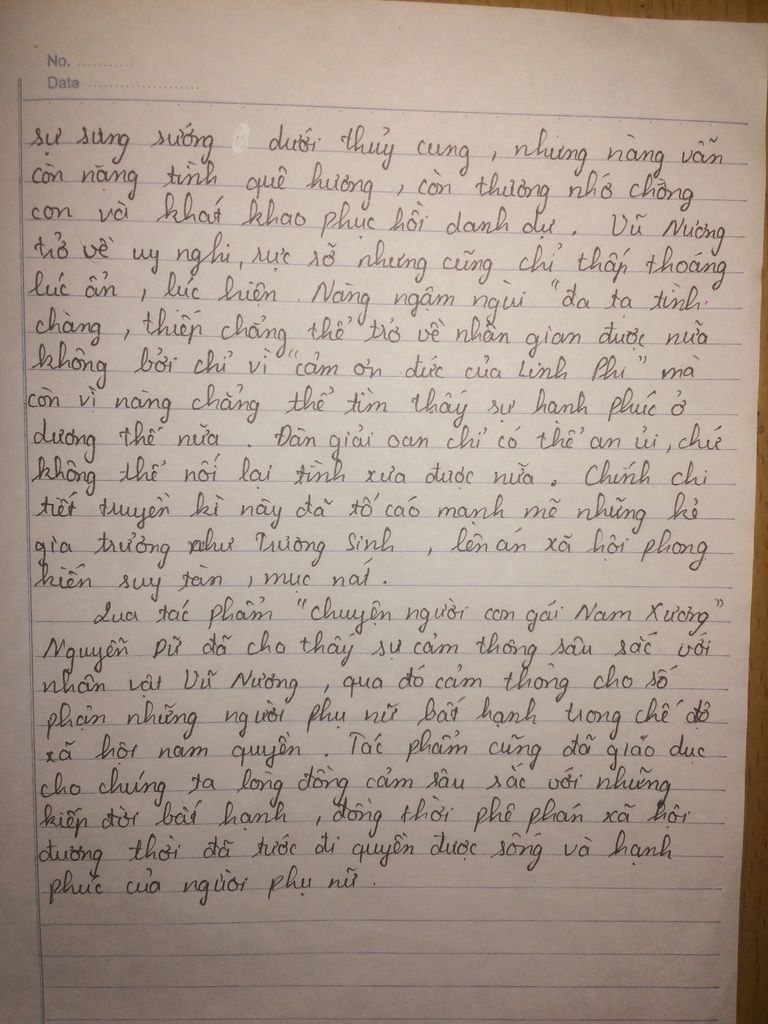 No. ...........
Date ......................
sự sung sướng dưới thuỷ cung , nhưng nàng vẫn
còn nặng tình quê hương , còn thương nhớ chồng
con và khát khao phục hồi danh dự . Vũ Nương
trở về uy nghi, rực rỡ nhưng cũng chỉ thấp thoáng
lúc ẩn , lúc hiện . Nàng ngậm ngùi "đa tạ tình
chàng , thiếp chẳng thể trở về nhân gian được nữa
không bởi chỉ vì "cảm ơn đức của Linh Phi" mà
còn vì nàng chẳng thể tìm thấy sự hạnh phúc ở
dương thế nữa . Đàn giải oan chỉ có thể an ủi, chứ
không thể nối lại tình xưa được nữa . Chính chi
tiết truyền kì này đã tố cáo mạnh mẽ những kẻ
gia trưởng như Trương Sinh , lên án xã hội phong
kiến suy tàn , mục nát .
Qua tác phẩm "chuyện người con gái Nam Xương"
Nguyễn Dữ đã cho thấy sự cảm thông sâu sắc với
nhân vật Vũ Nương , qua đó cảm thông cho số
phận những người phụ nữ bất hạnh trong chế độ
xã hội nam quyền . Tác phẩm cũng đã giáo dục
cho chúng ta lòng đồng cảm sâu sắc với những
kiếp đời bất hạnh , đồng thời phê phán xã hội
đương thời đã tước đi quyền được sống và hạnh
phúc của người phụ nữ .